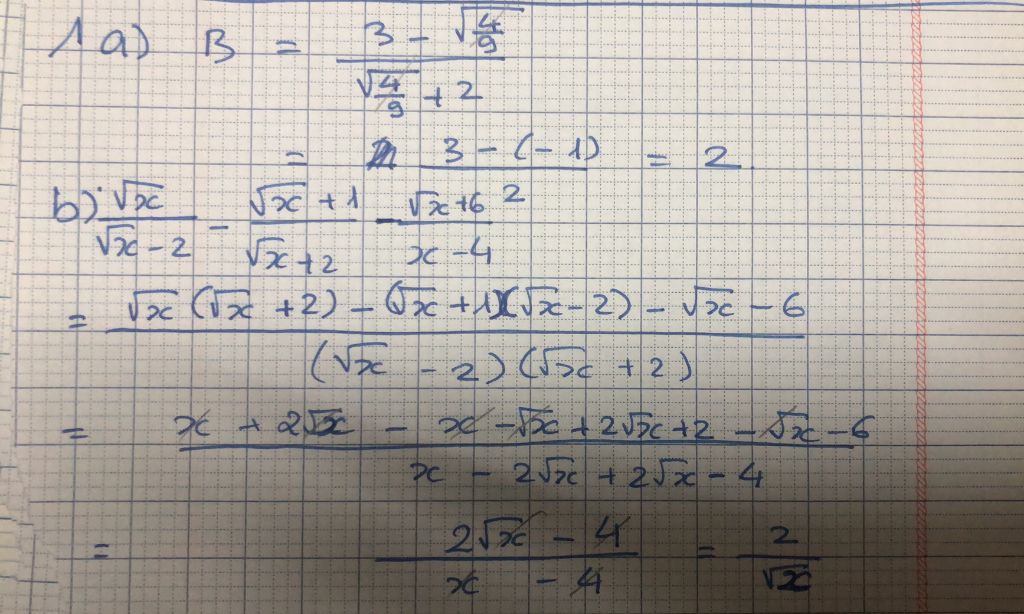 1 a) B = (3 - √(4/9)) / (√(4/9) + 2)
= 3 - (-1) = 2.
b) √x / (√x - 2) - (√x + 1) / (√x + 2) - (√x + 6) / (x - 4) 2
= (√x (√x + 2) - (√x + 1)(√x - 2) - √x - 6) / ((√x - 2)(√x + 2))
= (x + 2√x - x - √x + 2√x + 2 - √x - 6) / (x - 2√x + 2√x - 4)
= (2√x - 4) / (x - 4) = 2 / √x